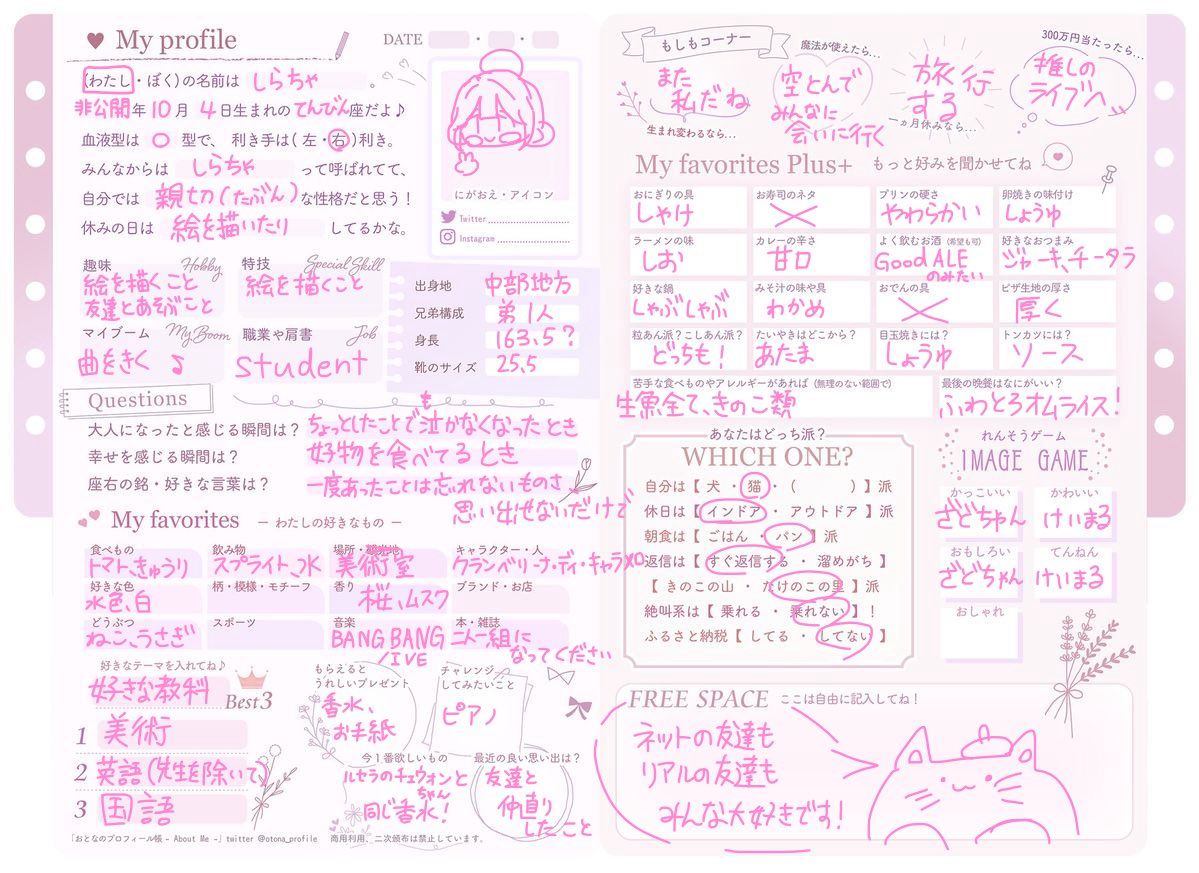 My profile
DATE
(わたし・ぼく)の名前は しらちゃ 。
非公開年 10月 4日生まれの てんびん座だよ♪
血液型は O 型で、 利き手は( 左・右 )利き。
みんなからは しらちゃ って呼ばれてて、
自分では 親切(たぶん) な性格だと思う！
休みの日は 絵を描いたり してるかな。
にがおえ・アイコン
Twitter
Instagram
趣味 Hobby
絵を描くこと
友達とあそぶこと
特技 Special Skill
絵を描くこと
マイブーム My Boom
曲をきく ♪
職業や肩書 Job
student
出身地 中部地方
兄弟構成 弟1人
身長 163.5?
靴のサイズ 25.5
Questions
大人になったと感じる瞬間は？ ちょっとしたことでも泣かなくなったとき
幸せを感じる瞬間は？ 好物を食べてるとき
座右の銘・好きな言葉は？ 一度あったことは忘れないものさ
思い出せないだけで
My favorites － わたしの好きなもの －
食べもの
トマト、きゅうり
飲み物
スプライト、水
場所・観光地
美術室
キャラクター・人
クランベリーナ・ディ・キャラメロ
好きな色
水色、白
柄・模様・モチーフ
香り
桜、ムスク
ブランド・お店
どうぶつ
ねこ、うさぎ
スポーツ
音楽
BANG BANG
/IVE
本・雑誌
二人一組に
なってください
好きなテーマを入れてね♪
好きな教科
Best3
1 美術
2 英語(先生を除いて)
3 国語
もらえると
うれしいプレゼント
香水、
お手紙
チャレンジ
してみたいこと
ピアノ
今1番欲しいもの
ルセラのチェウォンと
ちゃん
同じ香水！
最近の良い思い出は？
友達と
仲直り
したこと
「おとなのプロフィール帳 - About Me -」twitter @otona_profile 商用利用、二次頒布は禁止しています。
もしもコーナー
また
私だね
生まれ変わるなら...
魔法が使えたら...
空とんで
みんなに
会いに行く
旅行
する
一ヵ月休みなら...
300万円当たったら...
推しの
ライブへ
My favorites Plus+ もっと好みを聞かせてね
おにぎりの具
しゃけ
お寿司のネタ
プリンの硬さ
やわらかい
卵焼きの味付け
しょうゆ
ラーメンの味
しお
カレーの辛さ
甘口
よく飲むお酒 (希望も可)
Good ALE
のみたい
好きなおつまみ
ジャーキー、チータラ
好きな鍋
しゃぶしゃぶ
みそ汁の味や具
わかめ
おでんの具
ピザ生地の厚さ
厚く
粒あん派？こしあん派？
どっちも！
たいやきはどこから？
あたま
目玉焼きには？
しょうゆ
トンカツには？
ソース
苦手な食べものやアレルギーがあれば (無理のない範囲で)
生魚全て、きのこ類
最後の晩餐はなにがいい？
ふわとろオムライス！
あなたはどっち派？
WHICH ONE?
自分は【 犬 ・ 猫 ・ ( ) 】派
休日は【 インドア ・ アウトドア 】派
朝食は【 ごはん ・ パン 】派
返信は【 すぐ返信する ・ 溜めがち 】
【 きのこの山 ・ たけのこの里 】派
絶叫系は【 乗れる ・ 乗れない 】！
ふるさと納税【 してる ・ してない 】
れんそうゲーム
IMAGE GAME
かっこいい
ざどちゃん
かわいい
けいまる
おもしろい
ざどちゃん
てんねん
けいまる
おしゃれ
FREE SPACE ここは自由に記入してね！
ネットの友達も
リアルの友達も
みんな大好きです！